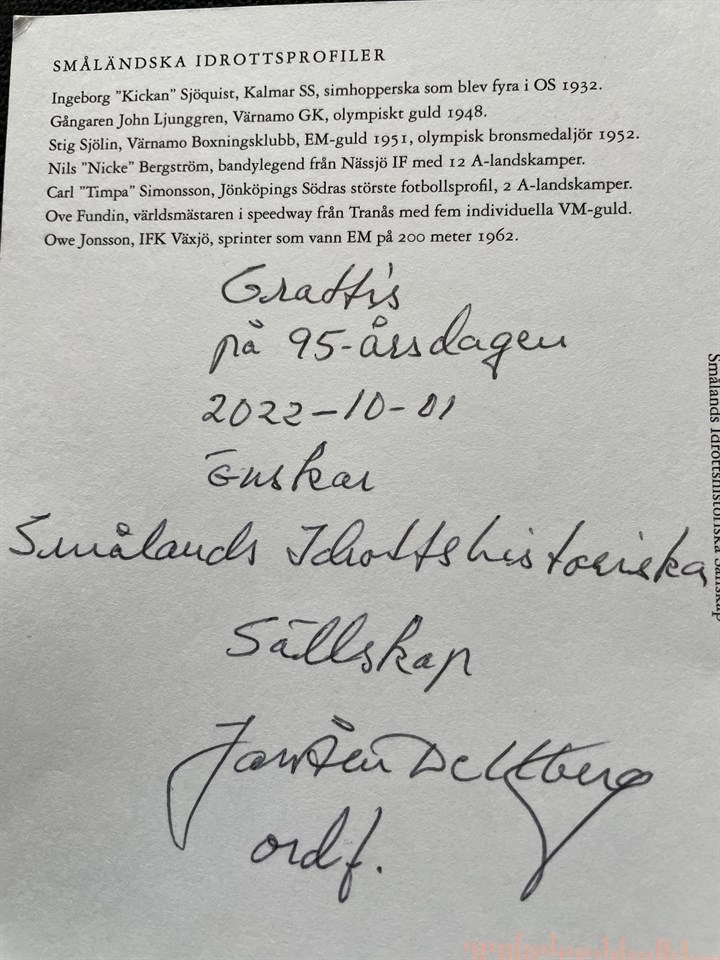 SMÅLÄNDSKA IDROTTSPROFILER
Ingeborg "Kickan" Sjöquist, Kalmar SS, simhopperska som blev fyra i OS 1932.
Gångaren John Ljunggren, Värnamo GK, olympiskt guld 1948.
Stig Sjölin, Värnamo Boxningsklubb, EM-guld 1951, olympisk bronsmedaljör 1952.
Nils "Nicke" Bergström, bandylegend från Nässjö IF med 12 A-landskamper.
Carl "Timpa" Simonsson, Jönköpings Södras störste fotbollsprofil, 2 A-landskamper.
Ove Fundin, världsmästaren i speedway från Tranås med fem individuella VM-guld.
Owe Jonsson, IFK Växjö, sprinter som vann EM på 200 meter 1962.
Grattis
på 95-årsdagen
2022-10-01
Önskar
Smålands Idrottshistoriska
Sällskap
ordf.
Smålands Idrottshistoriska Sällskap